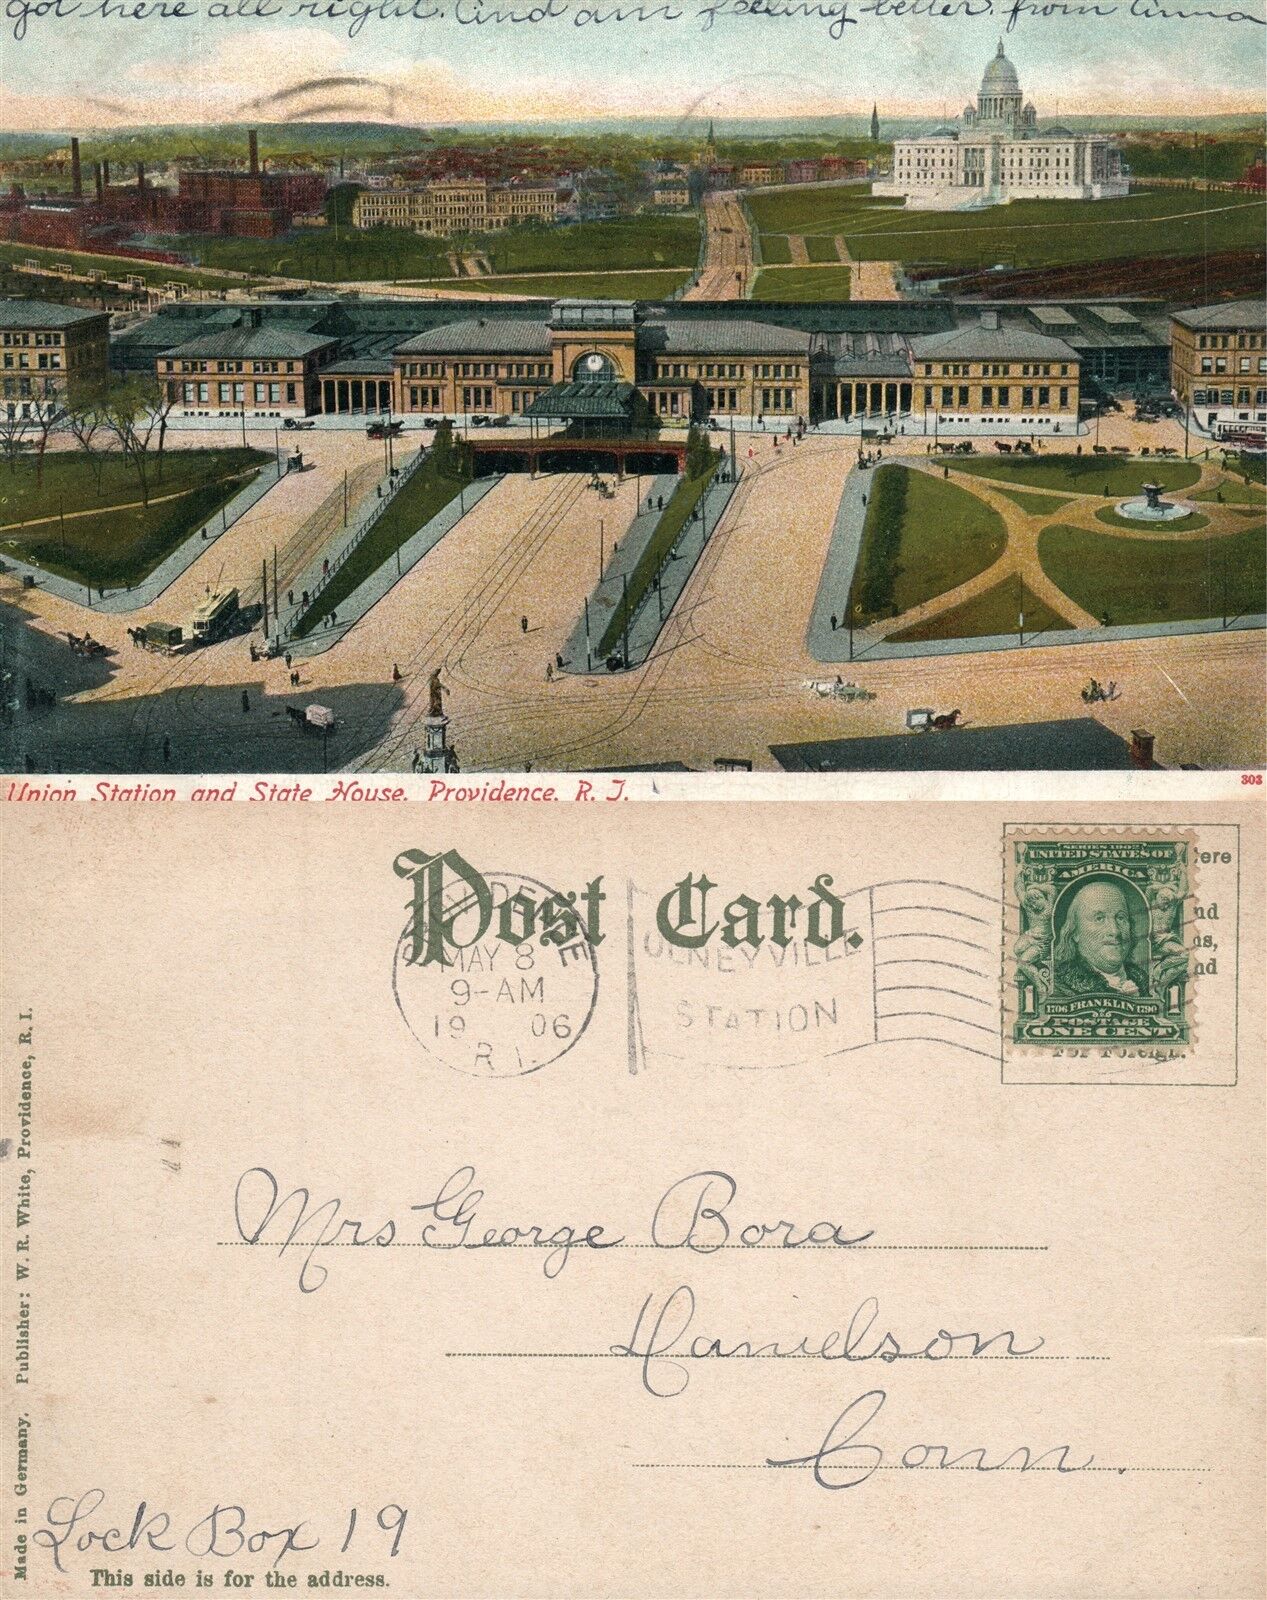 got here all right. And am feeling better. from Anna
Union Station and State House, Providence, R. I.
303
Post Card.
PROVIDENCE
MAY 8
9-AM
19 06
R I.
OLNEYVILLE
STATION
SERIES 1902
UNITED STATES OF
AMERICA
1706 FRANKLIN 1790
1 1
POSTAGE
ONE CENT
ere
nd
ns,
nd
For Foreign.
Mrs George Bora
Danielson
Conn.
Lock Box 19
This side is for the address.
Made in Germany. Publisher: W. R. White, Providence, R. I.